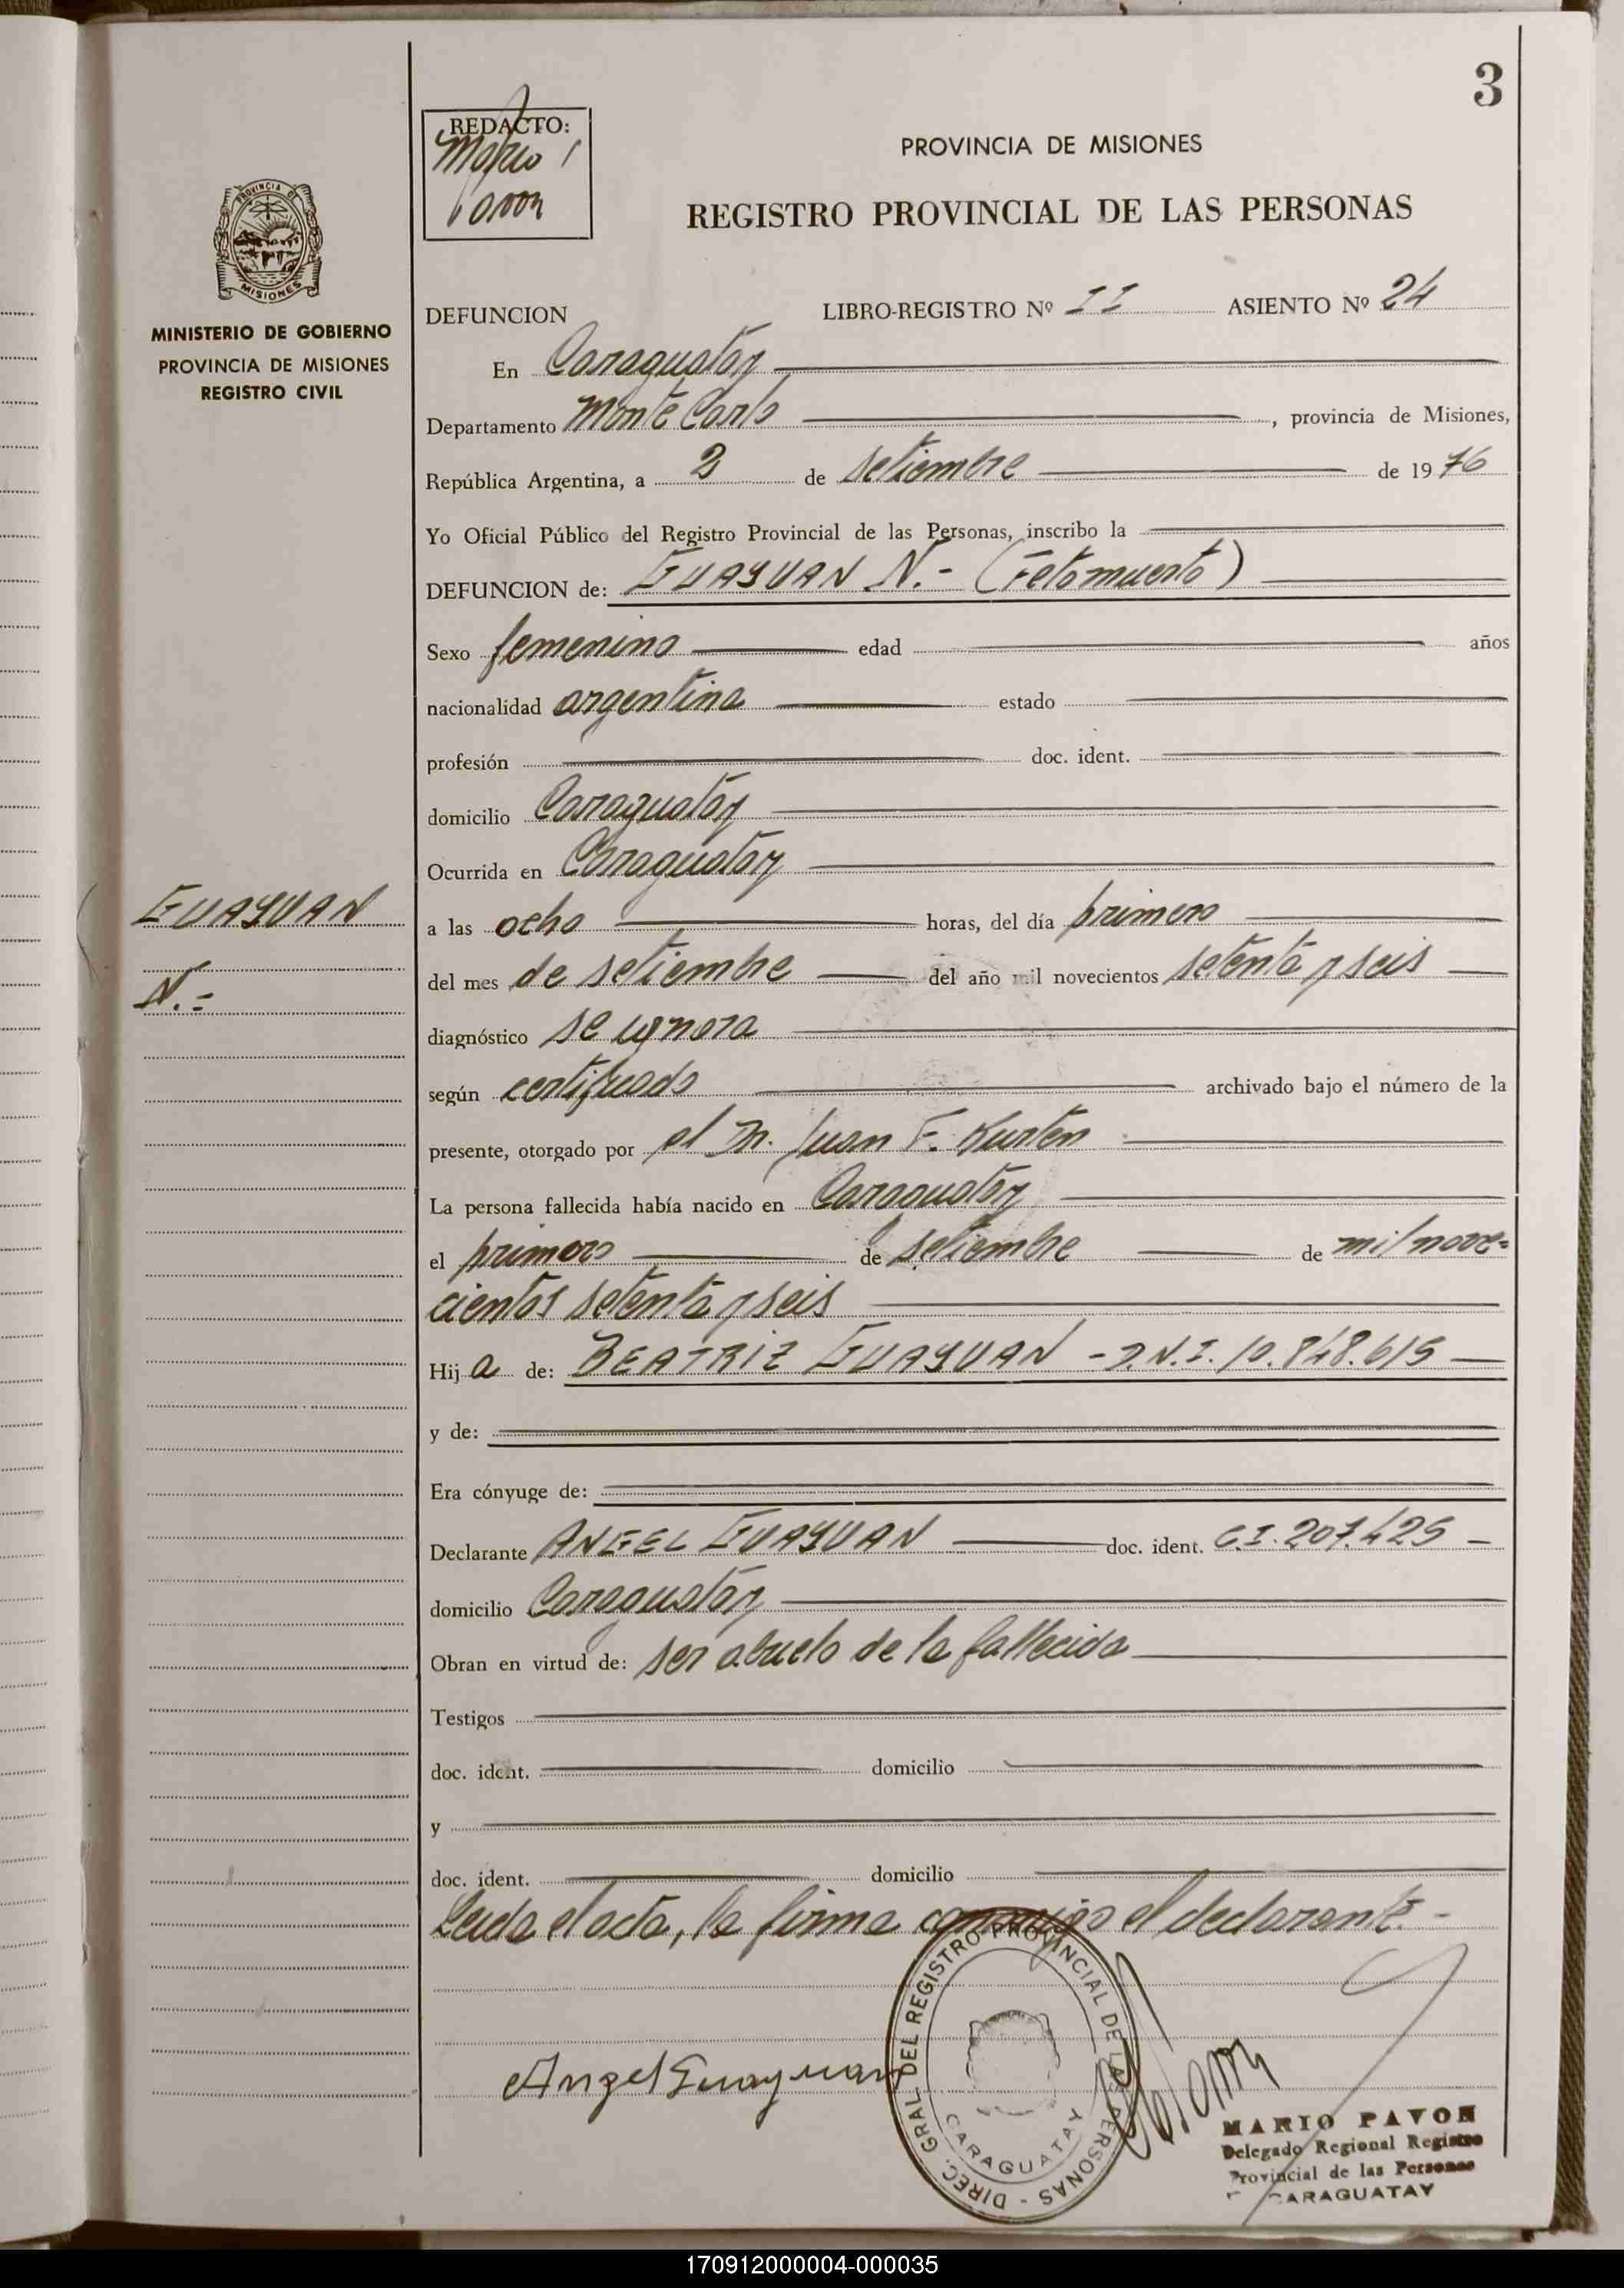 3
REDACTO:
Mario
Pavon
PROVINCIA DE MISIONES
REGISTRO PROVINCIAL DE LAS PERSONAS
PROVINCIA DE
MISIONES
MINISTERIO DE GOBIERNO
PROVINCIA DE MISIONES
REGISTRO CIVIL
DEFUNCION LIBRO-REGISTRO Nº II ASIENTO Nº 24
En Caraguatay
Departamento Monte Carlo, provincia de Misiones,
República Argentina, a 2 de setiembre de 1976
Yo Oficial Público del Registro Provincial de las Personas, inscribo la
DEFUNCION de: GUAYUAN N.- (Feto muerto)
Sexo femenino edad años
nacionalidad argentina estado
profesión doc. ident.
domicilio Caraguatay
Ocurrida en Caraguatay
GUAYUAN
a las ocho horas, del día primero
N.=
del mes de setiembre del año mil novecientos setenta y seis
diagnóstico se ignora
según certificado archivado bajo el número de la
presente, otorgado por el Dr. Juan F. Kurten
La persona fallecida había nacido en Caraguatay
el primero de setiembre de mil nove=
cientos setenta y seis
Hija de: BEATRIZ GUAYUAN - D.N.I. 10.848.615
y de:
Era cónyuge de:
Declarante ANGEL GUAYUAN doc. ident. C.I. 207.425
domicilio Caraguatay
Obran en virtud de: ser abuelo de la fallecida
Testigos
doc. ident. domicilio
y
doc. ident. domicilio
Leida el acta, la firma conmigo el declarante.-
DIREC. GRAL DEL REGISTRO PROVINCIAL DE LAS PERSONAS -
CARAGUATAY
Angel Guayuan
MARIO PAVON
Delegado Regional Registro
Provincial de las Personas
CARAGUATAY
170912000004-000035